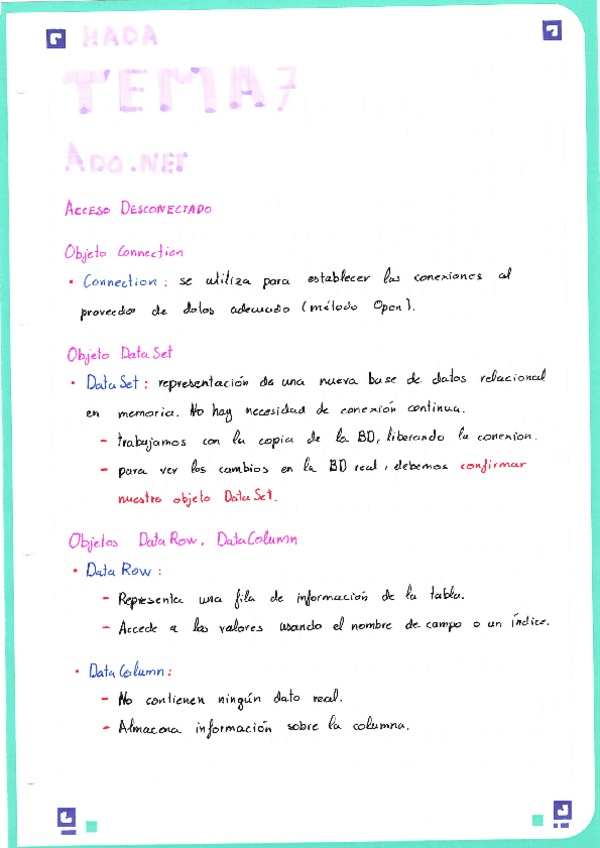 HADA
TEMA 7
ADO.NET
ACCESO DESCONECTADO
Objeto Connection
• Connection: se utiliza para establecer las conexiones al
proveedor de datos adecuado (método Open).
Objeto DataSet
• DataSet: representación de una nueva base de datos relacional
en memoria. No hay necesidad de conexión continua.
- trabajamos con la copia de la BD, liberando la conexion.
- para ver los cambios en la BD real, debemos confirmar
nuestro objeto DataSet.
Objetos DataRow, DataColumn
• DataRow:
- Representa una fila de información de la tabla.
- Accede a los valores usando el nombre de campo o un índice.
• DataColumn:
- No contienen ningún dato real.
- Almacena información sobre la columna.